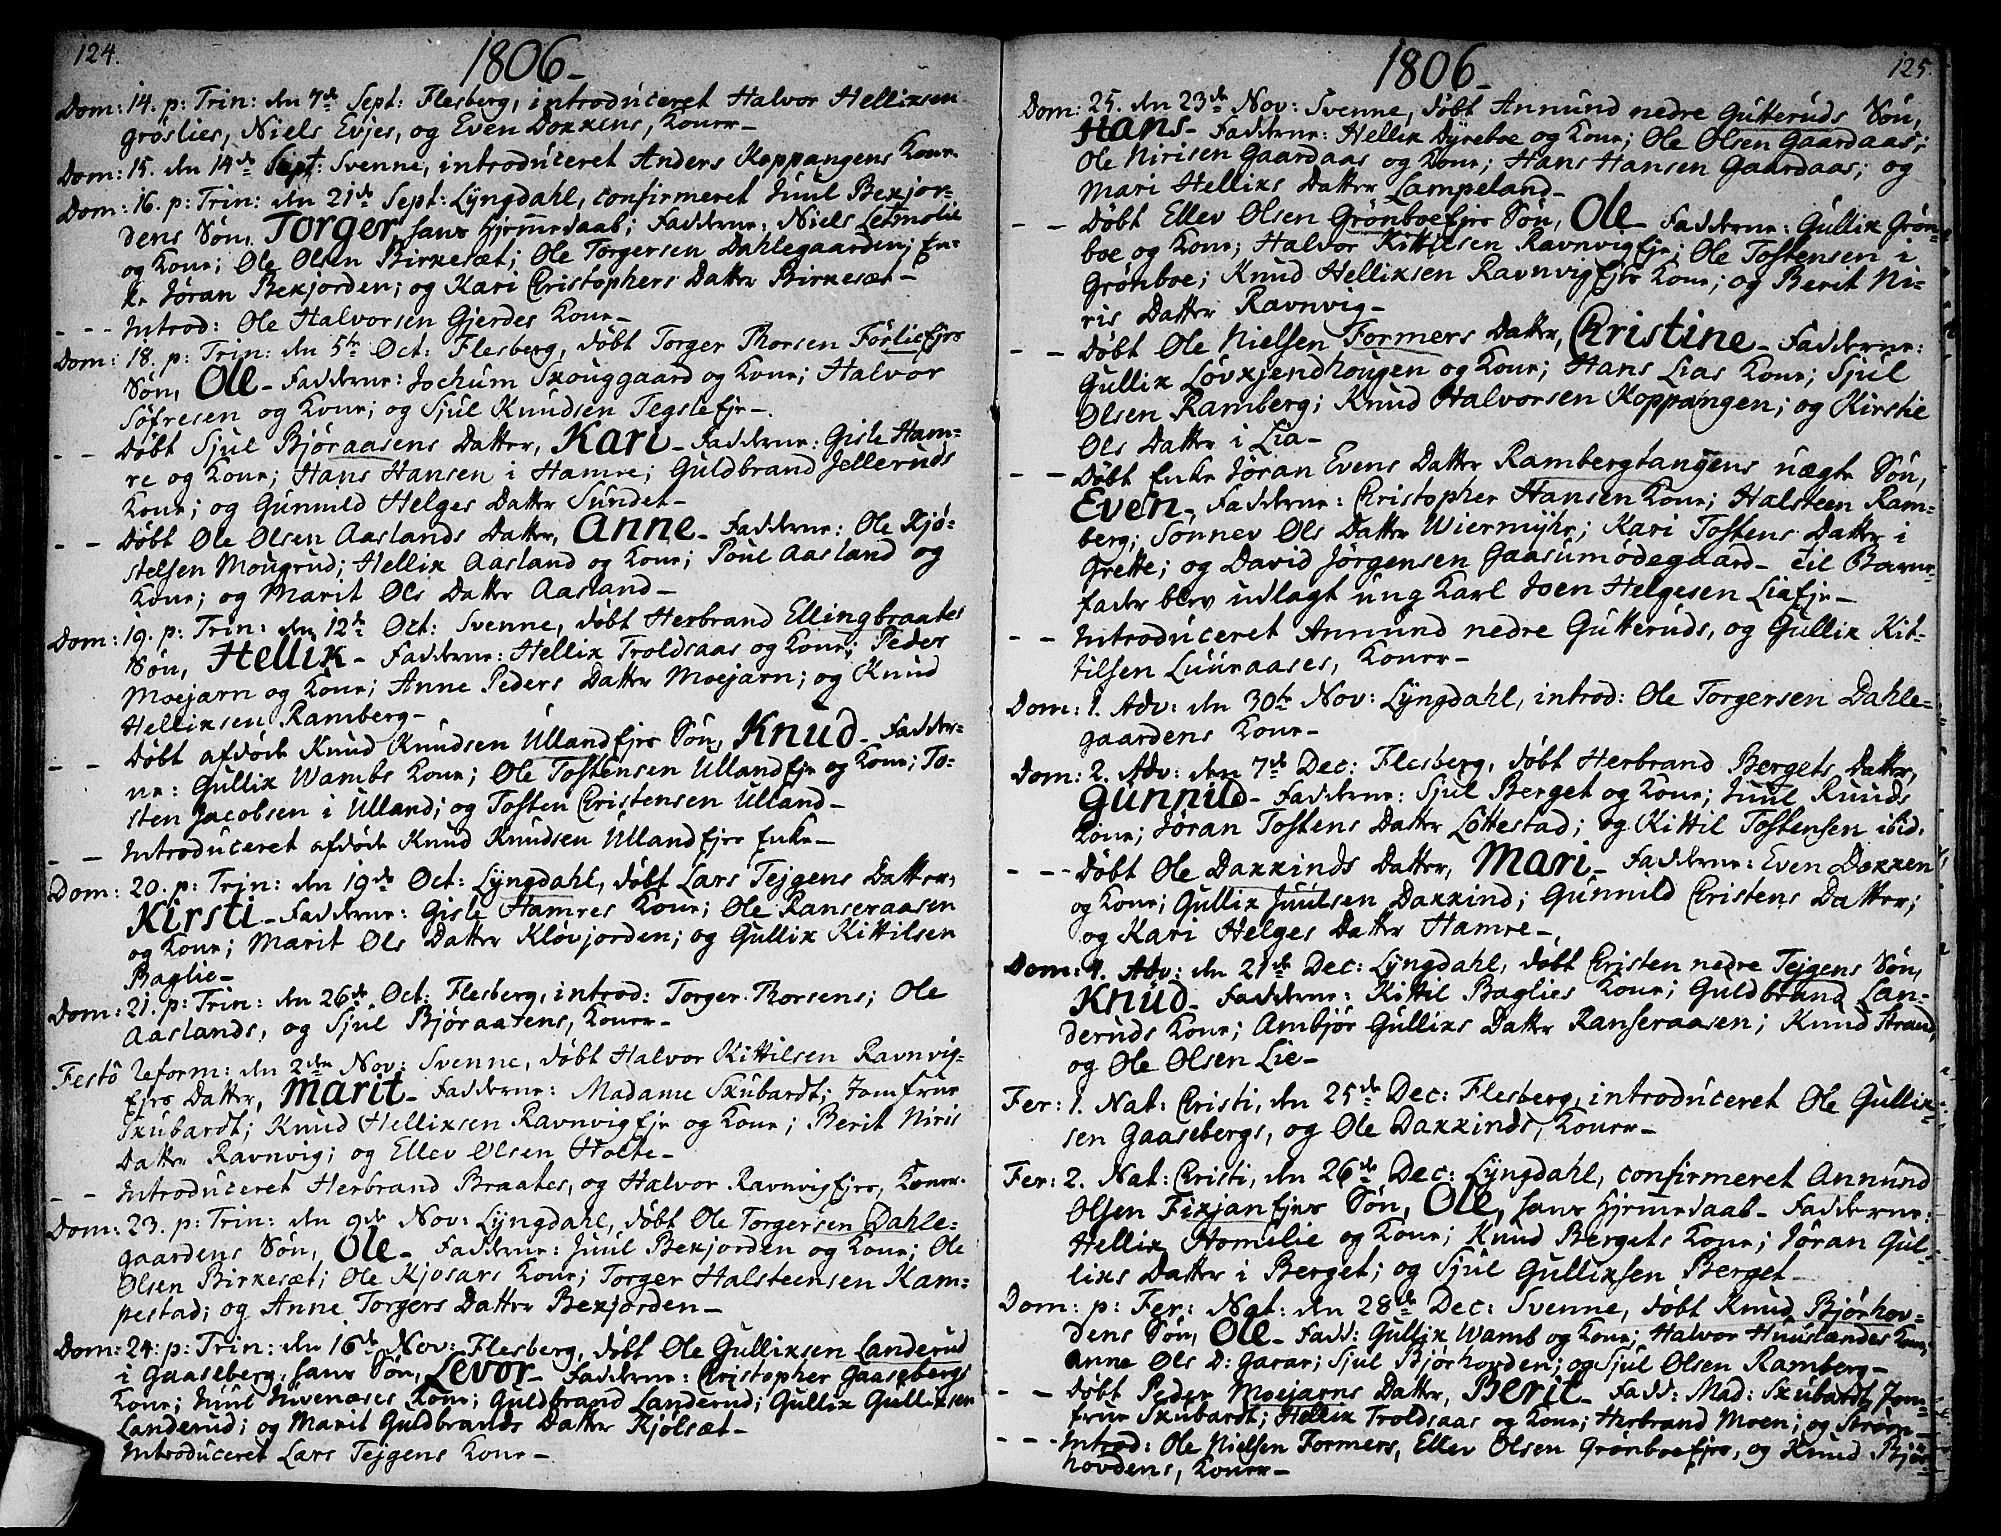 124.
1806
Dom: 14. p: Trin: den 7de Sept: Flesberg, introduceret Halvor Helliksen
Grøslies, Niels Evjes, og Even Dokkens, Koner
Dom: 15. den 14de Sept: Svenne, introduceret Anders Koppangens Kone
Dom: 16. p: Trin: den 21de Sept: Lyngdahl, confirmeret Juul Bekjor-
dens Søn, Torger, hans Hjemmedaab; Fadderne: Niels Letmolie
og Kone; Ole Olsen Birkesæt; Ole Torgersen Dahlegaarden; En-
ke Jøran Bekjorden; og Kari Christophers Datter Birkesæt
- - - Introd: Ole Halvorsen Gjerdes Kone
Dom: 18. p: Trin: den 5te Oct: Flesberg, døbt Torger Thorsen Førlieejes
Søn, Ole - Fadderne: Jochum Skouggaard og Kone; Halvor
Søfresen og Kone; og Sjul Knudsen Tegsleeje
- - Døbt Sjul Bjøraasens Datter, Kari - Fadderne: Gisle Ham-
re og Kone; Hans Hansen i Hamre; Guldbrand Jelleruds
Kone; og Gunnild Helges Datter Sundet
- - Døbt Ole Olsen Aaslands Datter, Anne - Fadderne: Ole Kjø-
stelsen Mougrud; Hellik Aasland og Kone; Poul Aasland og
Kone; og Marit Ols Datter Aasland
Dom: 19. p: Trin: den 12te Oct: Svenne, døbt Herbrand Ellingbraates
Søn, Hellik - Fadderne: Hellik Troldsaas og Kone; Peder
Moejarn og Kone; Anne Peders Datter Moejarn; og Knud
Helliksen Ramberg
- - Døbt afdøde Knud Knudsen Ullandejes Søn, Knud - Fadder-
ne: Gullik Wambs Kone; Ole Tostensen Ullandeje og Kone; To-
sten Jacobsen i Ulland; og Tosten Christensen Ulland
- - Introduceret afdøde Knud Knudsen Ullandejes Enke
Dom: 20. p: Trin: den 19de Oct: Lyngdahl, døbt Lars Tejgens Datter,
Kirsti - Fadderne: Gisle Hamres Kone; Ole Ranseraasen
og Kone; Marit Ols Datter Kløvjorden; og Gullik Kittilsen
Baglie
Dom: 21. p: Trin: den 26de Oct: Flesberg, introd: Torger Thorsens; Ole
Aaslands, og Sjul Bjøraasens, Koner
Festo Reform: den 2den Nov: Svenne, døbt Halvor Kittilsen Ravnvig-
ejes Datter, Marit - Fadderne: Madame Skubardt; Jomfrue
Skubardt; Knud Helliksen Ravnvigeje og Kone; Berit Niris
Datter Ravnvig; og Ellev Olsen Holte
- - Introduceret Herbrand Braates, og Halvor Ravnvigejes, Koner
Dom: 23. p: Trin: den 9de Nov: Lyngdahl, døbt Ole Torgersen Dahle-
gaardens Søn, Ole - Fadderne: Juul Bekjorden og Kone; Ole
Olsen Birkesæt; Ole Kjosars Kone; Torger Halsteensen Kam-
pestad; og Anne Torgers Datter Bekjorden
Dom: 24: p: Trin: den 16de Nov: Flesberg, døbt Ole Gulliksen Landerud
i Gaaseberg, hans Søn, Levor - Fadderne: Christopher Gaasebergs
Kone; Juul Juvenæses Kone; Guldbrand Landerud; Gullik Gulliksen
Landerud; og Marit Guldbrands Datter Kjølsæt
Introduceret Lars Tejgens Kone
125.
1806
Dom: 25. den 23de Nov: Svenne, døbt Annund nedre Gutteruds Søn,
Hans - Fadderne: Hellik Dyreboe og Kone; Ole Olsen Gaardaas;
Ole Nirisen Gaardaas og Kone; Hans Hansen Gaardaas; og
Mari Helliks Datter Lampeland
- - Døbt Ellev Olsen Grønboeejes Søn, Ole - Fadderne: Gullik Grøn-
boe og Kone; Halvor Kittilsen Ravnvigeje; Ole Tostensen i
Grønboe; Knud Helliksen Ravnvigejes Kone; og Berit Ni-
ris Datter Ravnvig
- - Døbt Ole Nielsen Formers Datter, Christine - Fadderne:
Gullik Løvkjendhougen og Kone; Hans Lias Kone; Sjul
Olsen Ramberg; Knud Halvorsen Koppangen; og Kirstie
Ols Datter i Lia
- - Døbt Enke Jøran Evens Datter Rambergtangens uægte Søn,
Even - Fadderne: Christopher Hansen Kone; Halsteen Ram-
berg; Sønnev Ols Datter Wiermyhr; Kari Tostens Datter i
Grette; og David Jørgensen Gaasumodegaard - Til Barne-
fader blev udlagt ung Karl Joen Helgesen Liaeje
- - Introduceret Annund nedre Gutteruds, og Gullik Kit-
tilsen Luuraases, Koner
Dom: 1. Adv: den 30te Nov: Lyngdahl, introd: Ole Torgersen Dahle-
gaardens Kone
Dom: 2. Adv: den 7de Dec: Flesberg, døbt Herbrand Bergets Datter,
Gunnild - Fadderne: Sjul Berget og Kone; Juul Ruuds
Kone; Jøran Tostens Datter Løttestad; og Kittil Tostensen ibid.
- - - Døbt Ole Dakkinds Datter, Mari - Fadderne: Even Dokken
og Kone; Gullik Juulsen Dakkind; Gunnild Christens Datter;
og Kari Helges Datter Hamre
Dom: 4. Adv: den 21de Dec: Lyngdahl, døbt Christen nedre Tejgens Søn,
Knud - Fadderne: Kittil Baglies Kone; Guldbrand Lan-
deruds Kone; Ambjør Gulliks Datter Ranseraasen; Knud Strand,
og Ole Olsen Lie
Fer: 1. Nat: Christi, den 25de Dec: Flesberg, introduceret Ole Gullik-
sen Gaasebergs, og Ole Dakkinds, Koner
Fer: 2. Nat: Christi, den 26de Dec: Lyngdahl, confirmeret Annund
Olsen Fikjanejes Søn, Ole, hans Hjemmedaab - Fadderne:
Hellik Homelie og Kone; Knud Bergets Kone; Jøran Gul-
liks Datter i Berget; og Sjul Gulliksen Berget
Dom: p: Fer: Nat: den 28de Dec: Svenne, døbt Knud Bjørhov-
dens Søn, Ole - Fadd: Gullik Wamb og Kone; Halvor Huuslændes Kone,
Anne Ols D: Garar; Sjul Bjørhovden; og Sjul Olsen Ramberg
- - Døbt Peder Moejarns Datter, Berit - Fadd: Mad: Skubardt, Jom-
frue Skubardt; Hellik Troldsaas og Kone; Herbrand Moen; og Strøm
- - - Introd: Ole Nielsen Formers, Ellev Olsen Grønboeejes, og Knud Bjør-
hovdens, Koner